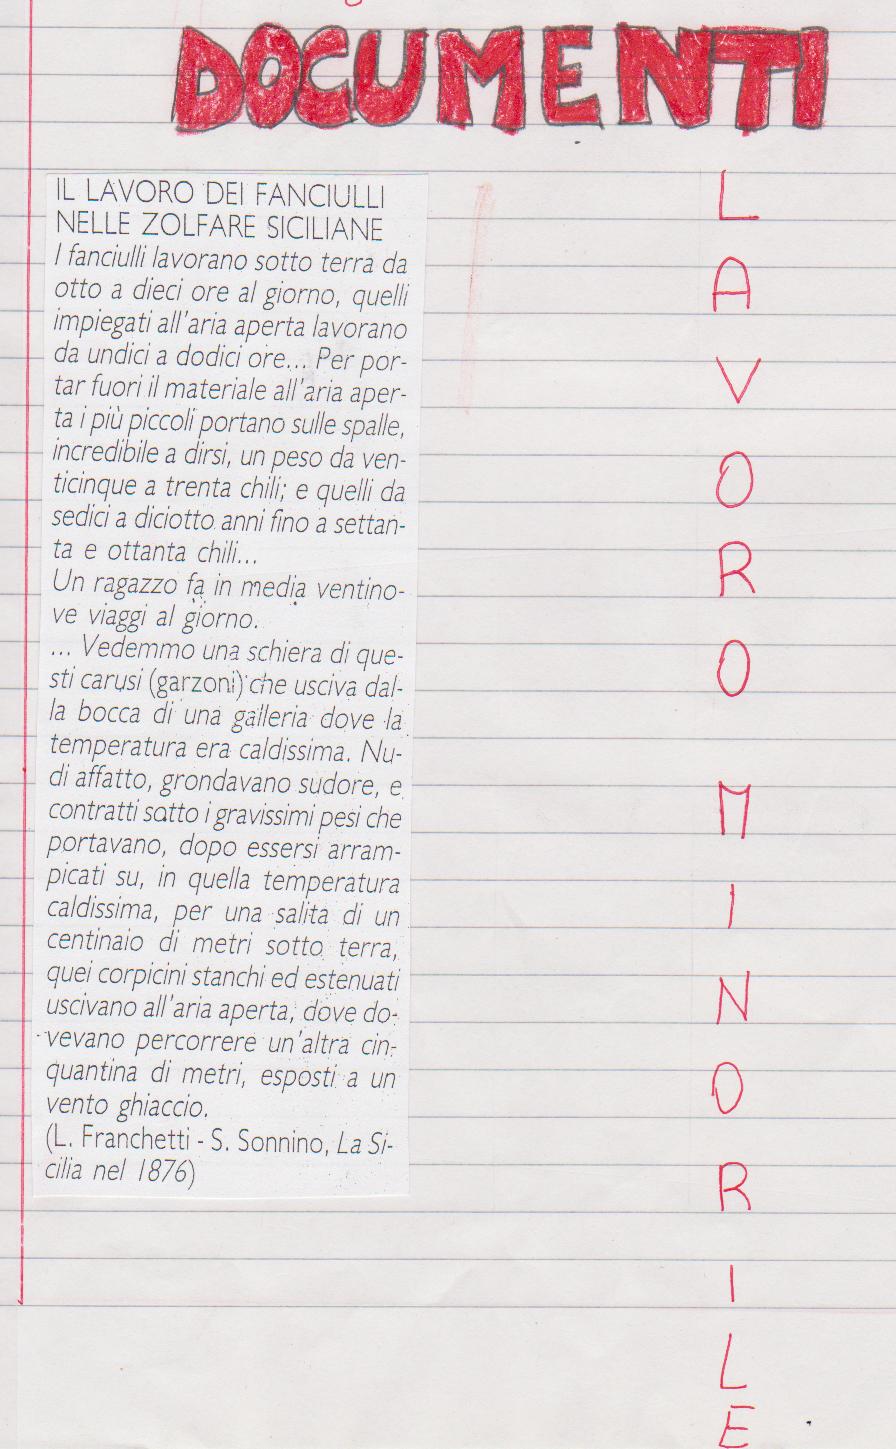 DOCUMENTI
IL LAVORO DEI FANCIULLI
NELLE ZOLFARE SICILIANE
I fanciulli lavorano sotto terra da
otto a dieci ore al giorno, quelli
impiegati all'aria aperta lavorano
da undici a dodici ore... Per por-
tar fuori il materiale all'aria aper-
ta i più piccoli portano sulle spalle,
incredibile a dirsi, un peso da ven-
ticinque a trenta chili; e quelli da
sedici a diciotto anni fino a settan-
ta e ottanta chili...
Un ragazzo fa in media ventino-
ve viaggi al giorno.
... Vedemmo una schiera di que-
sti carusi (garzoni) che usciva dal-
la bocca di una galleria dove la
temperatura era caldissima. Nu-
di affatto, grondavano sudore, e
contratti sotto i gravissimi pesi che
portavano, dopo essersi arram-
picati su, in quella temperatura
caldissima, per una salita di un
centinaio di metri sotto terra,
quei corpicini stanchi ed estenuati
uscivano all'aria aperta, dove do-
vevano percorrere un'altra cin-
quantina di metri, esposti a un
vento ghiaccio.
(L. Franchetti - S. Sonnino, La Si-
cilia nel 1876)
L
A
V
O
R
O
M
I
N
O
R
I
L
E